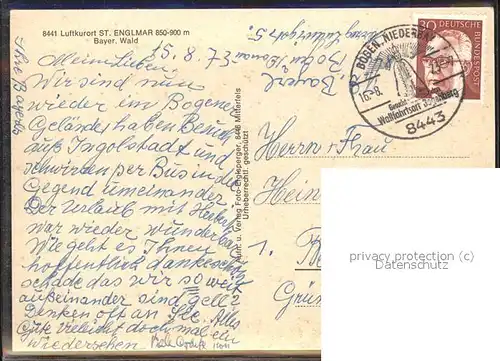 8441 Luftkurort ST. ENGLMAR 850-900 m
Bayer. Wald
15.8.73
Meine Lieben
Wir sind nun
wieder im Bogene
Gelände, haben Besuch
aus Ingolstadt und
schwirren per Bus in die
Gegend umeinander
Der Urlaub mit Herbert
war wieder wunderbar
Wie geht es Ihnen
hoffentlich dankeschön
Schade das wir so weit
außeinander sind gell?
Denken oft an Sie. Alles
Gute vieleicht doch mal ein
wiedersehen
Druck u. Verlag Foto-Englsperger, 846 Mitterteis
Urheberrechtl. geschützt
BOGEN, NIEDERBAY
16.-8.
Wallfahrtsort
8443
30 DEUTSCHE
BUNDESPOST
Herrn + Frau
Hein
1.
Grün
privacy protection
© Datenschutz